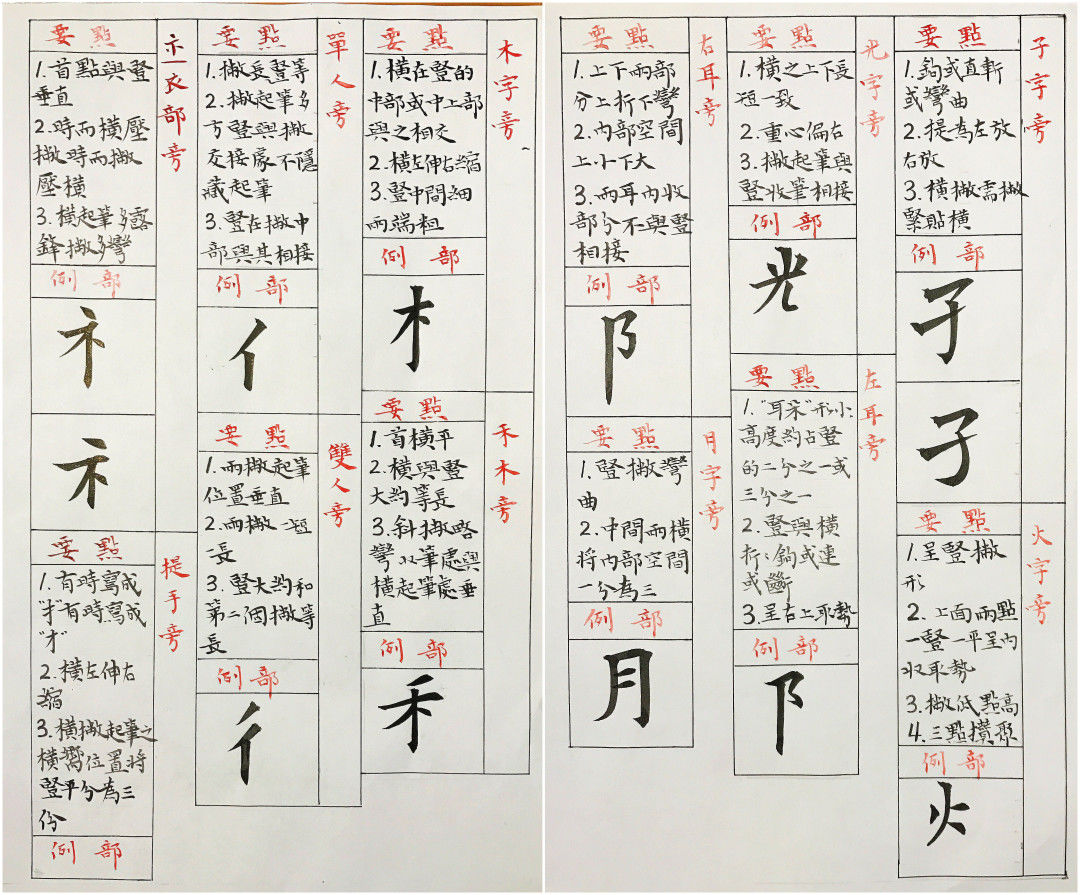 木字旁
要點
1.橫在豎的
中部或中上部
與之相交
2.橫左伸右縮
3.豎中間細
兩端粗
例部
木
禾木旁
要點
1.首橫平
2.橫與豎
大約等長
3.斜撇略
彎收筆處與
橫起筆處垂
直
例部
禾
單人旁
要點
1.撇長豎等
2.撇起筆多
方豎與撇
交接處不隱
藏起筆
3.豎在撇中
部與其相接
例部
亻
雙人旁
要點
1.兩撇起筆
位置垂直
2.兩撇一短
一長
3.豎大約和
第二個撇等
長
例部
彳
衣部旁
要點
1.首點與豎
垂直
2.時而橫壓
撇時而撇
壓橫
3.橫起筆多露
鋒撇多彎
例部
礻
礻
提手旁
要點
1.有時寫成
"扌"有時寫成
"才"
2.橫左伸右
縮
3.橫撇起筆之
橫嚮位置將
豎平分為三
份
例部
子字旁
要點
1.鈎或直斬
或彎曲
2.提為左放
右放
3.橫撇需撇
緊貼橫
例部
孑
子
火字旁
要點
1.呈豎撇
形
2.上面兩點
一豎一平呈內
收取勢
3.撇低點高
4.三點攢聚
例部
火
光字旁
要點
1.橫之上下長
短一致
2.重心偏右
3.撇起筆與
豎收筆相接
例部
光
左耳旁
要點
1."耳朵"形小
高度約占豎
的二分之一或
三分之一
2.豎與橫
折、鈎或連
或斷
3.呈右上取勢
例部
阝
右耳旁
要點
1.上下兩部
分上折下彎
2.內部空間
上小下大
3.兩耳內收
部分不與豎
相接
例部
阝
月字旁
要點
1.豎撇彎
曲
2.中間兩橫
將內部空間
一分為三
例部
月